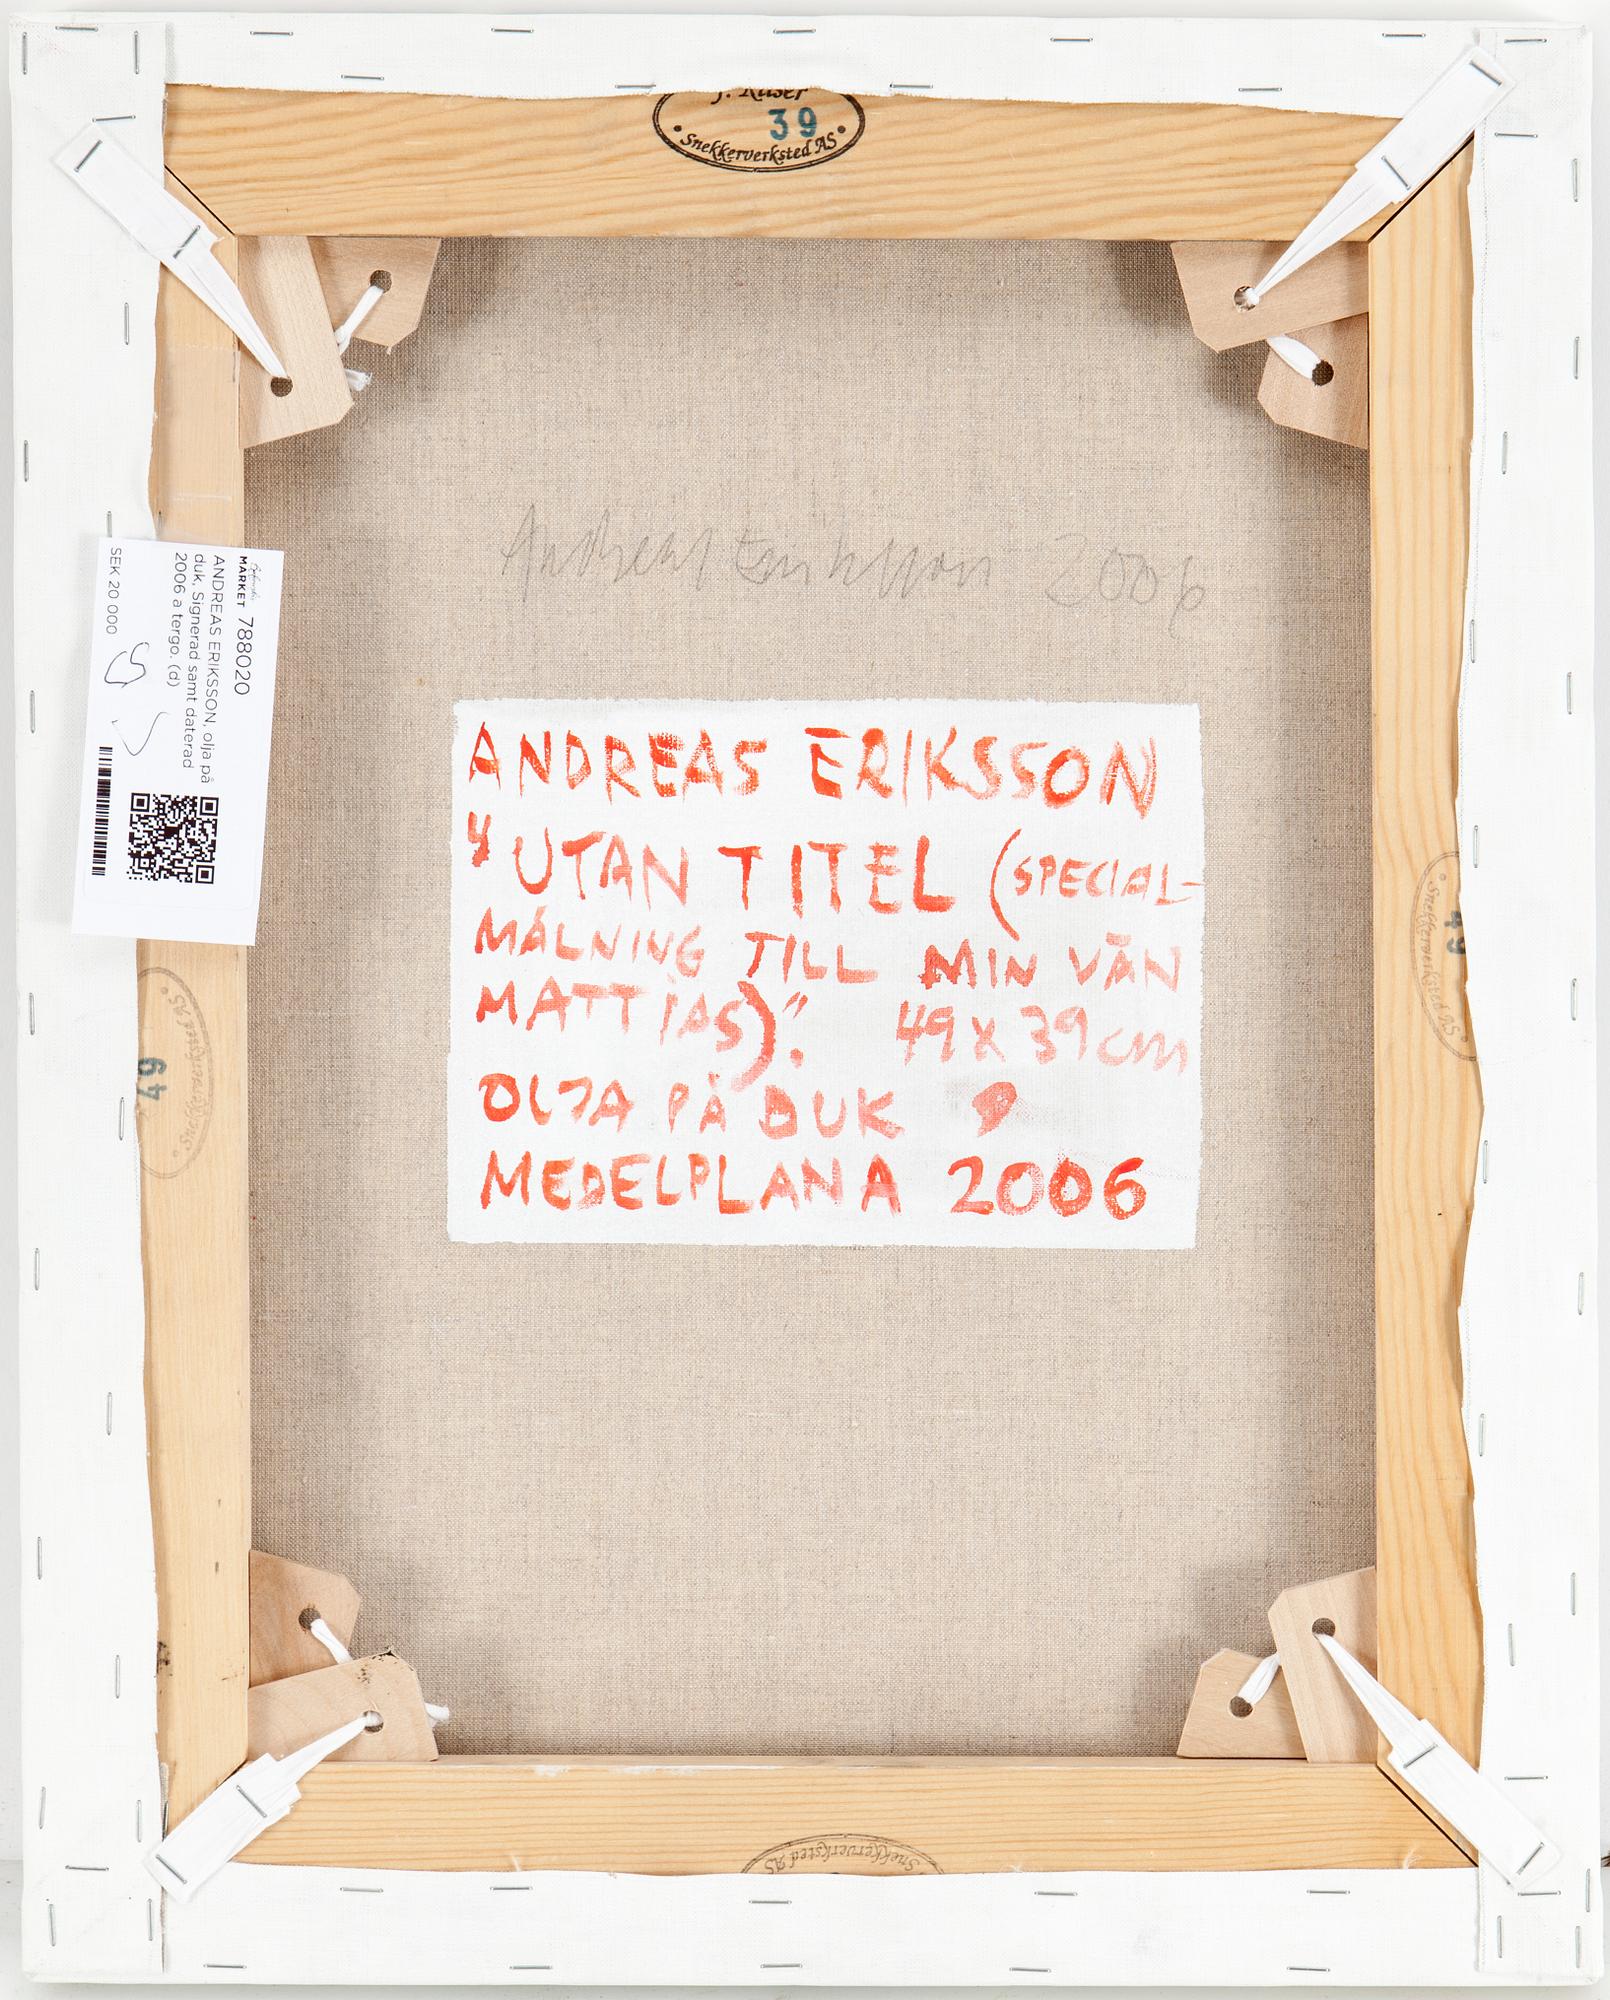 39
Snekkerverksted AS
Andreas Eriksson 2006
MARKET 788020
ANDREAS ERIKSSON, olja på
duk, Signerad samt daterad
2006 a tergo. (d)
SEK 20 000
ANDREAS ERIKSSON
"UTAN TITEL (SPECIAL-
MÅLNING TILL MIN VÄN
MATTIAS)". 49 X 39 cm
OLJA PÅ DUK
MEDELPLANA 2006
49
Snekkerverksted AS
49
Snekkerverksted AS
Snekkerverksted AS